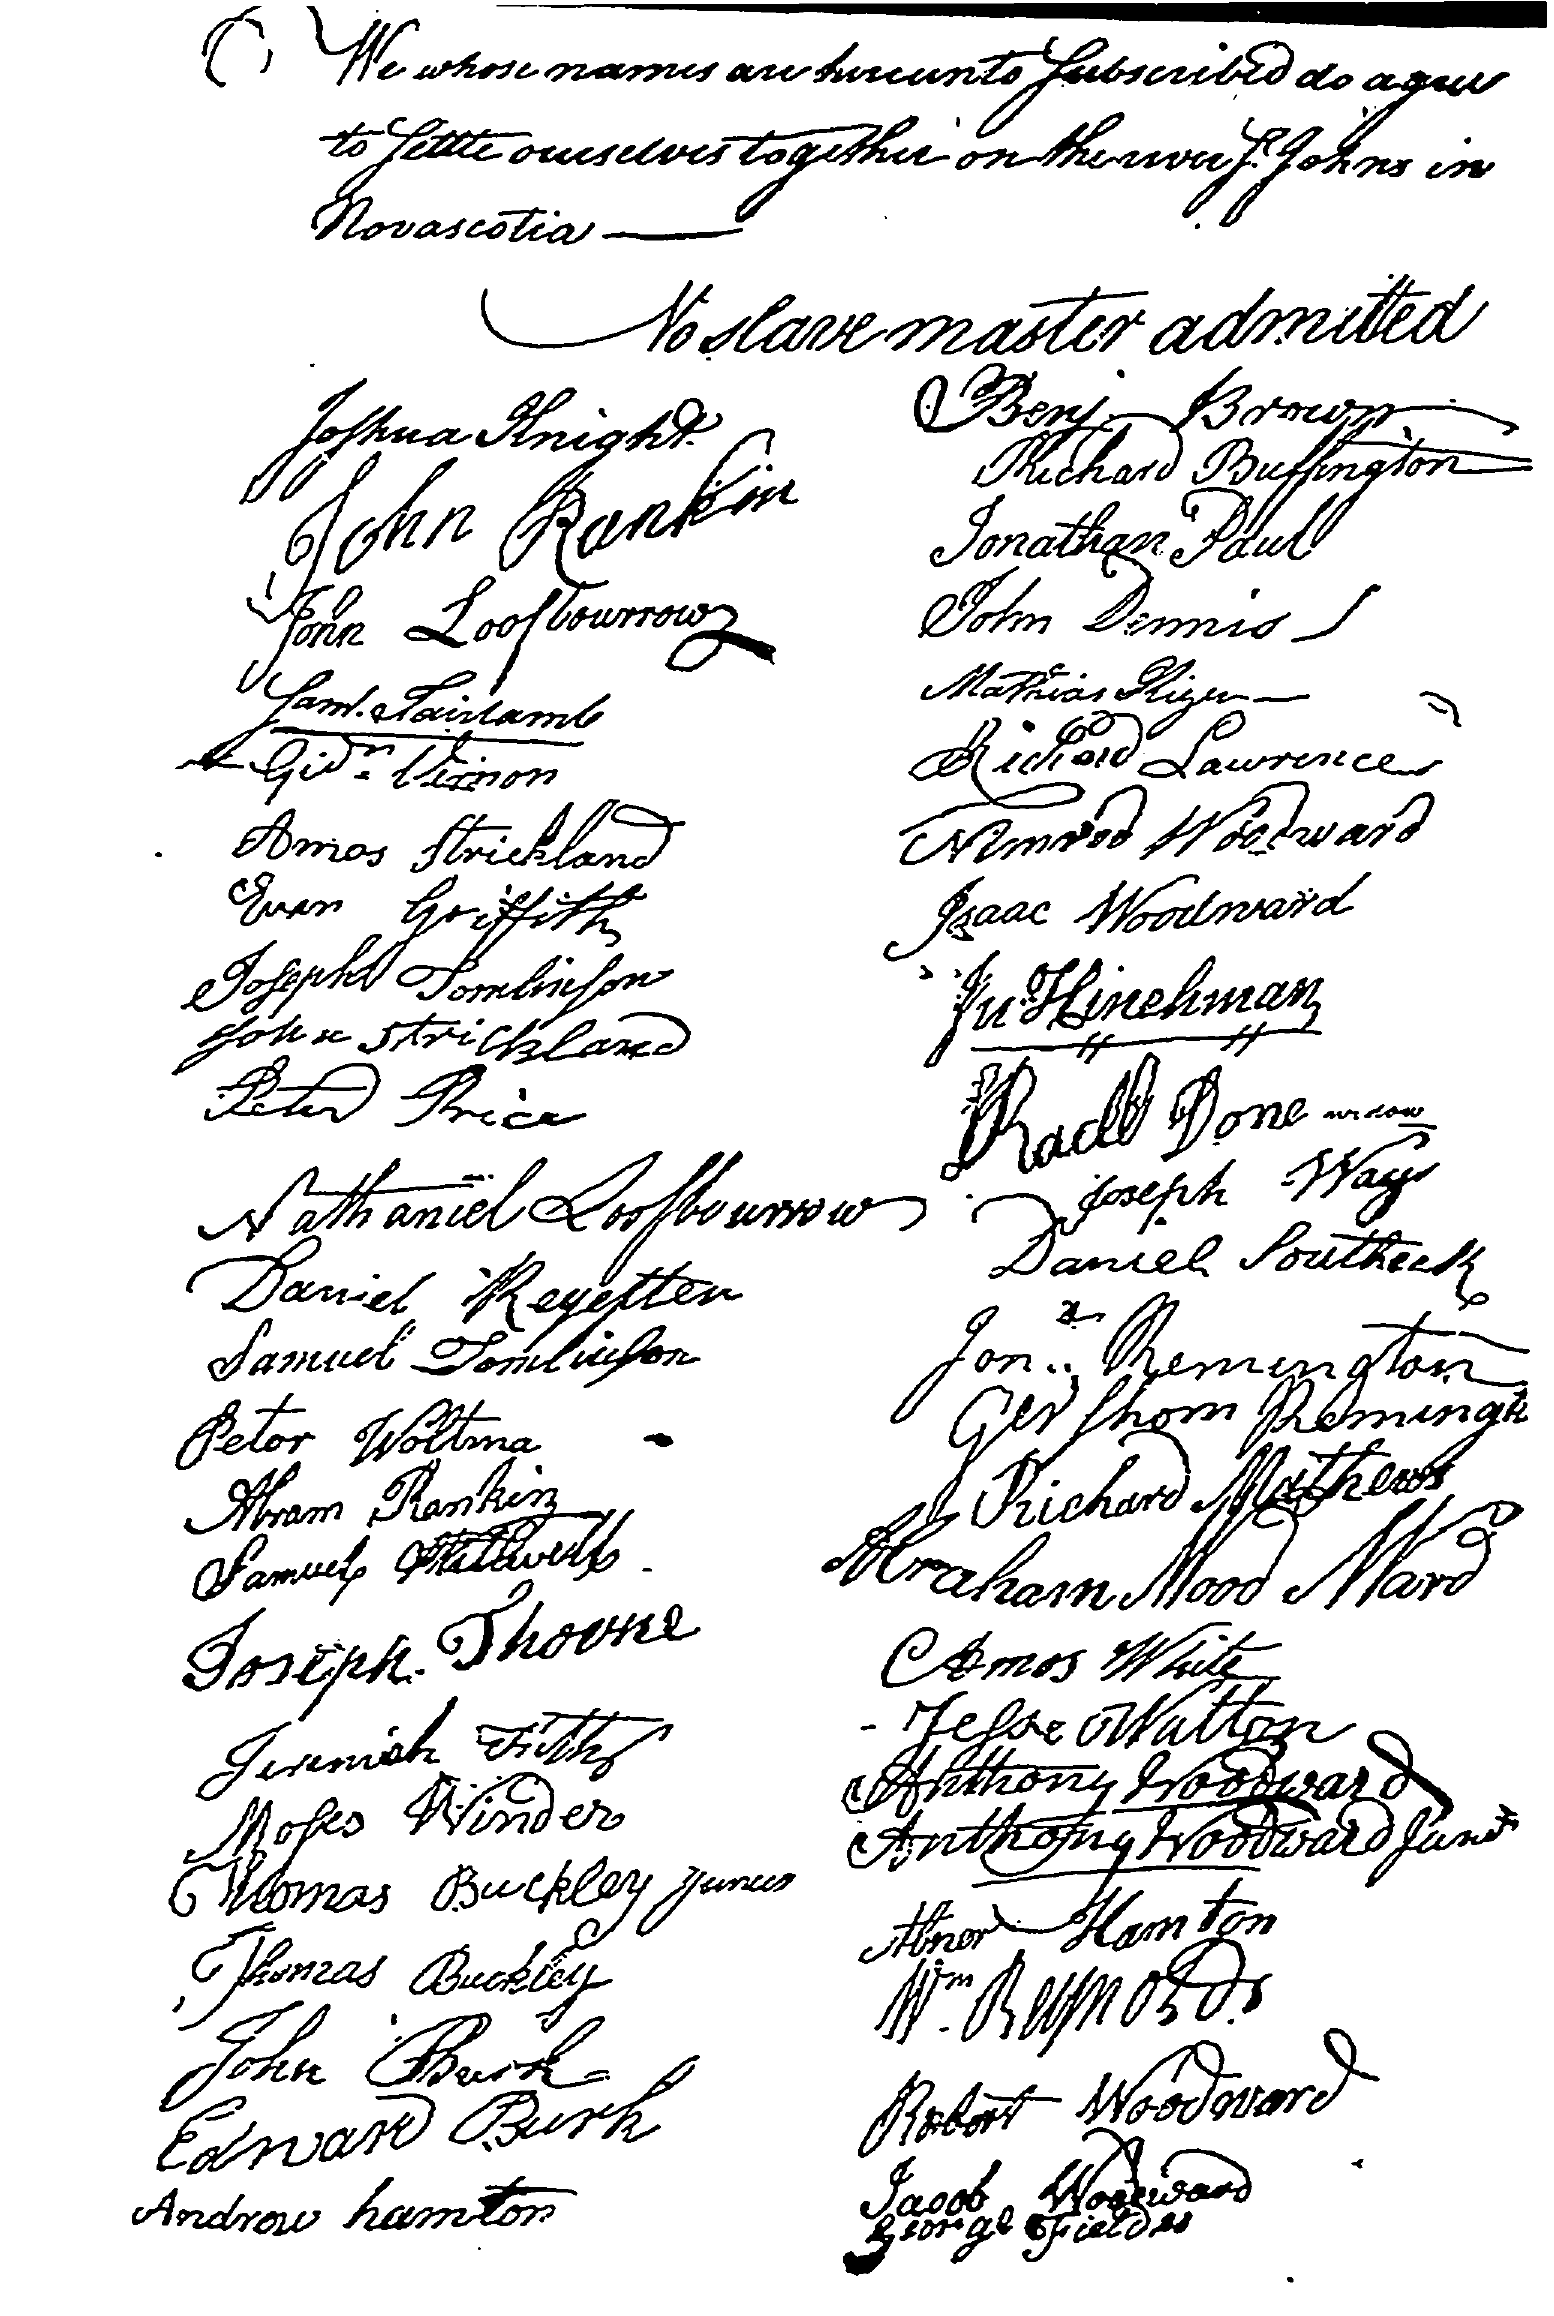 We whose names are hereunto Subscribed do agree
to Settle ourselves together on the river St. Johns in
Novascotia
No slave master admitted
Joshua Knight
John Rankin
John Loofbourrow
Saml. Fairlamb
Gidn. Vernon
Amos Strickland
Evan Griffith
Joseph Tomlinson
John Strickland
Peter Price
Nathaniel Loofbourrow
Daniel
Samuel Tomlinson
Petor Woltma
Abram Rankin
Samuel Stillwell
Joseph. Thorne
Jeremiah Fitch
Moses Winder
Thomas Buckley Junor
Thomas Buckley
John Burk
Edward Burk
Androw hamton
Benj. Brown
Richard Buffington
Jonathan Paul
John Dennis
Mathias
Richard Lawrence
Nimrod Woodward
Isaac Woodward
Jn Hinchman
Rachl Done widow
Joseph Ways
Daniel Southeck
Jonn. Remington
Gershom Remingt
Richard Mathews
Abraham Wood Ward
Amos White
Jesse Watton
Anthony Woodward
Anthony Woodward Junr
Abner Hamton
Wm. Reynolds
Robort Woodward
Jacob Woodward
George Fielder